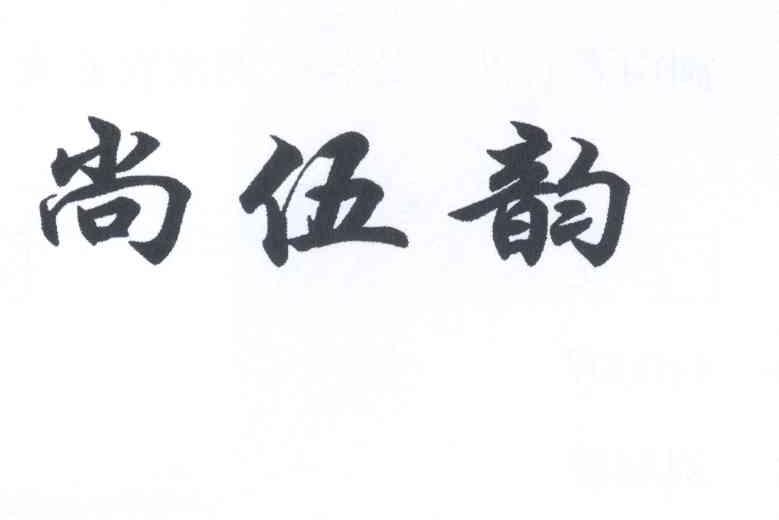 尚伍韵